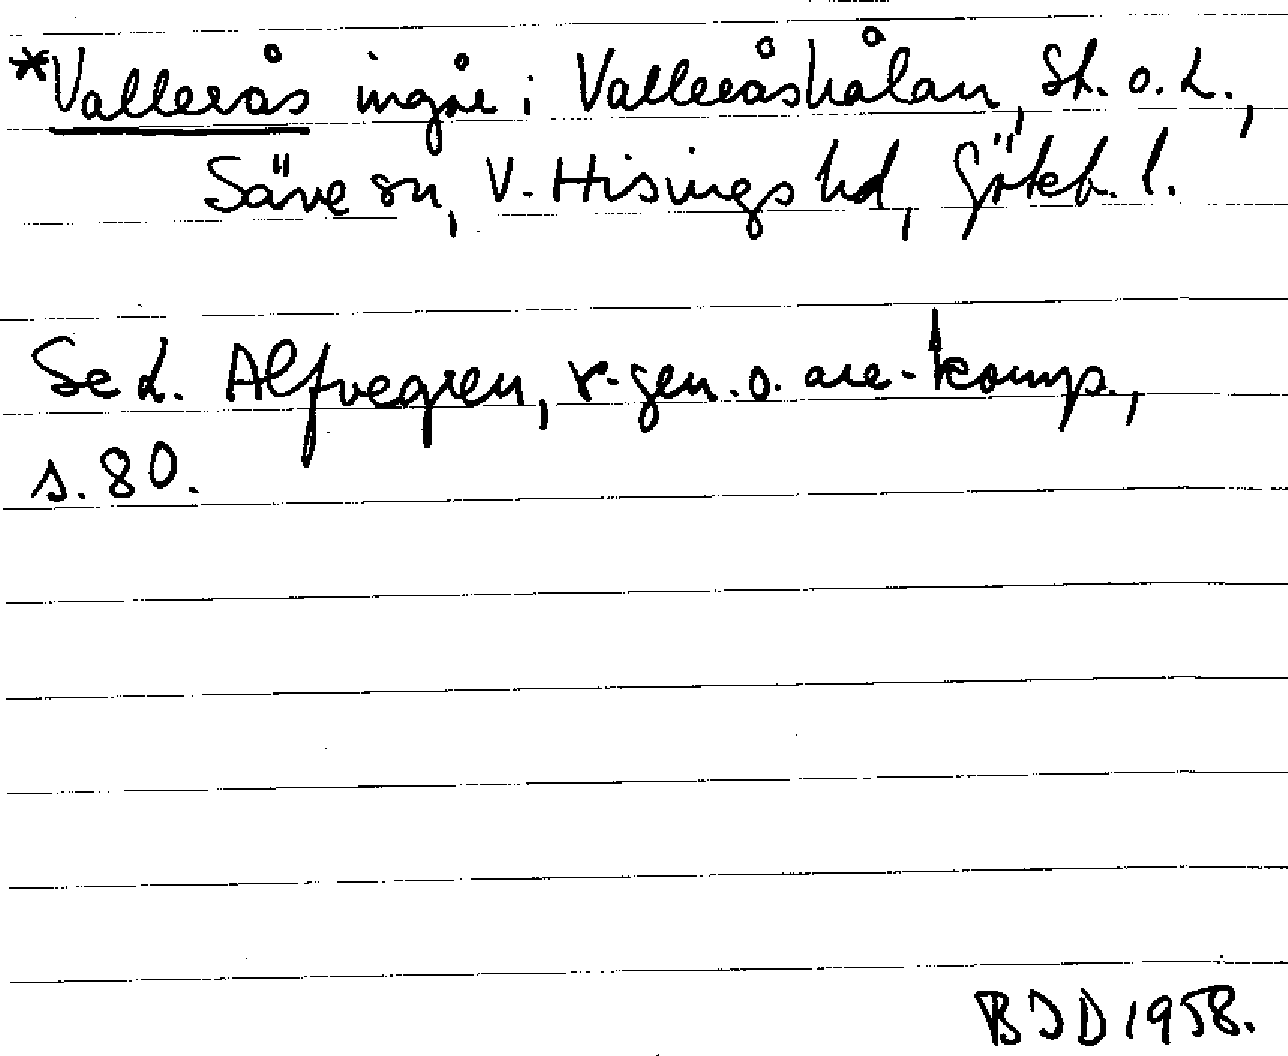 *Vallerås ingår i Valleråshålan, St. o. L.,
Säve sn, V. Hisings hd, Götebs. l.
Se L. Alfvegren, r-gen. o. are-komp.,
s. 80.
BJD 1958.